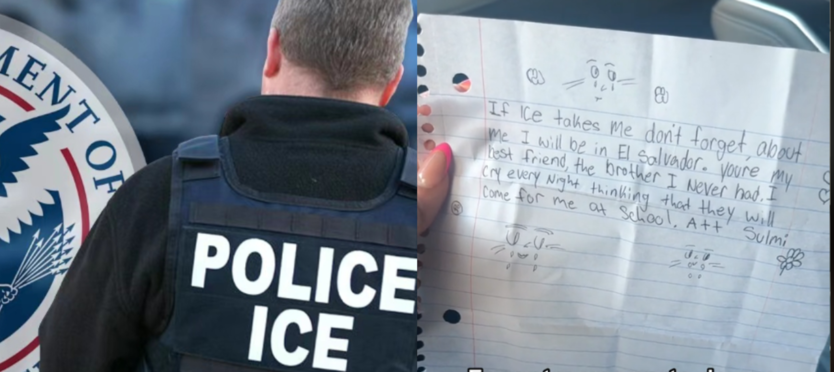 MENT OF
POLICE
ICE
If Ice takes me don't forget about
me I will be in El Salvador. youre my
best friend, the brother I Never had. I
cry every Night thinking that they will
come for me at School. Att Sulmi